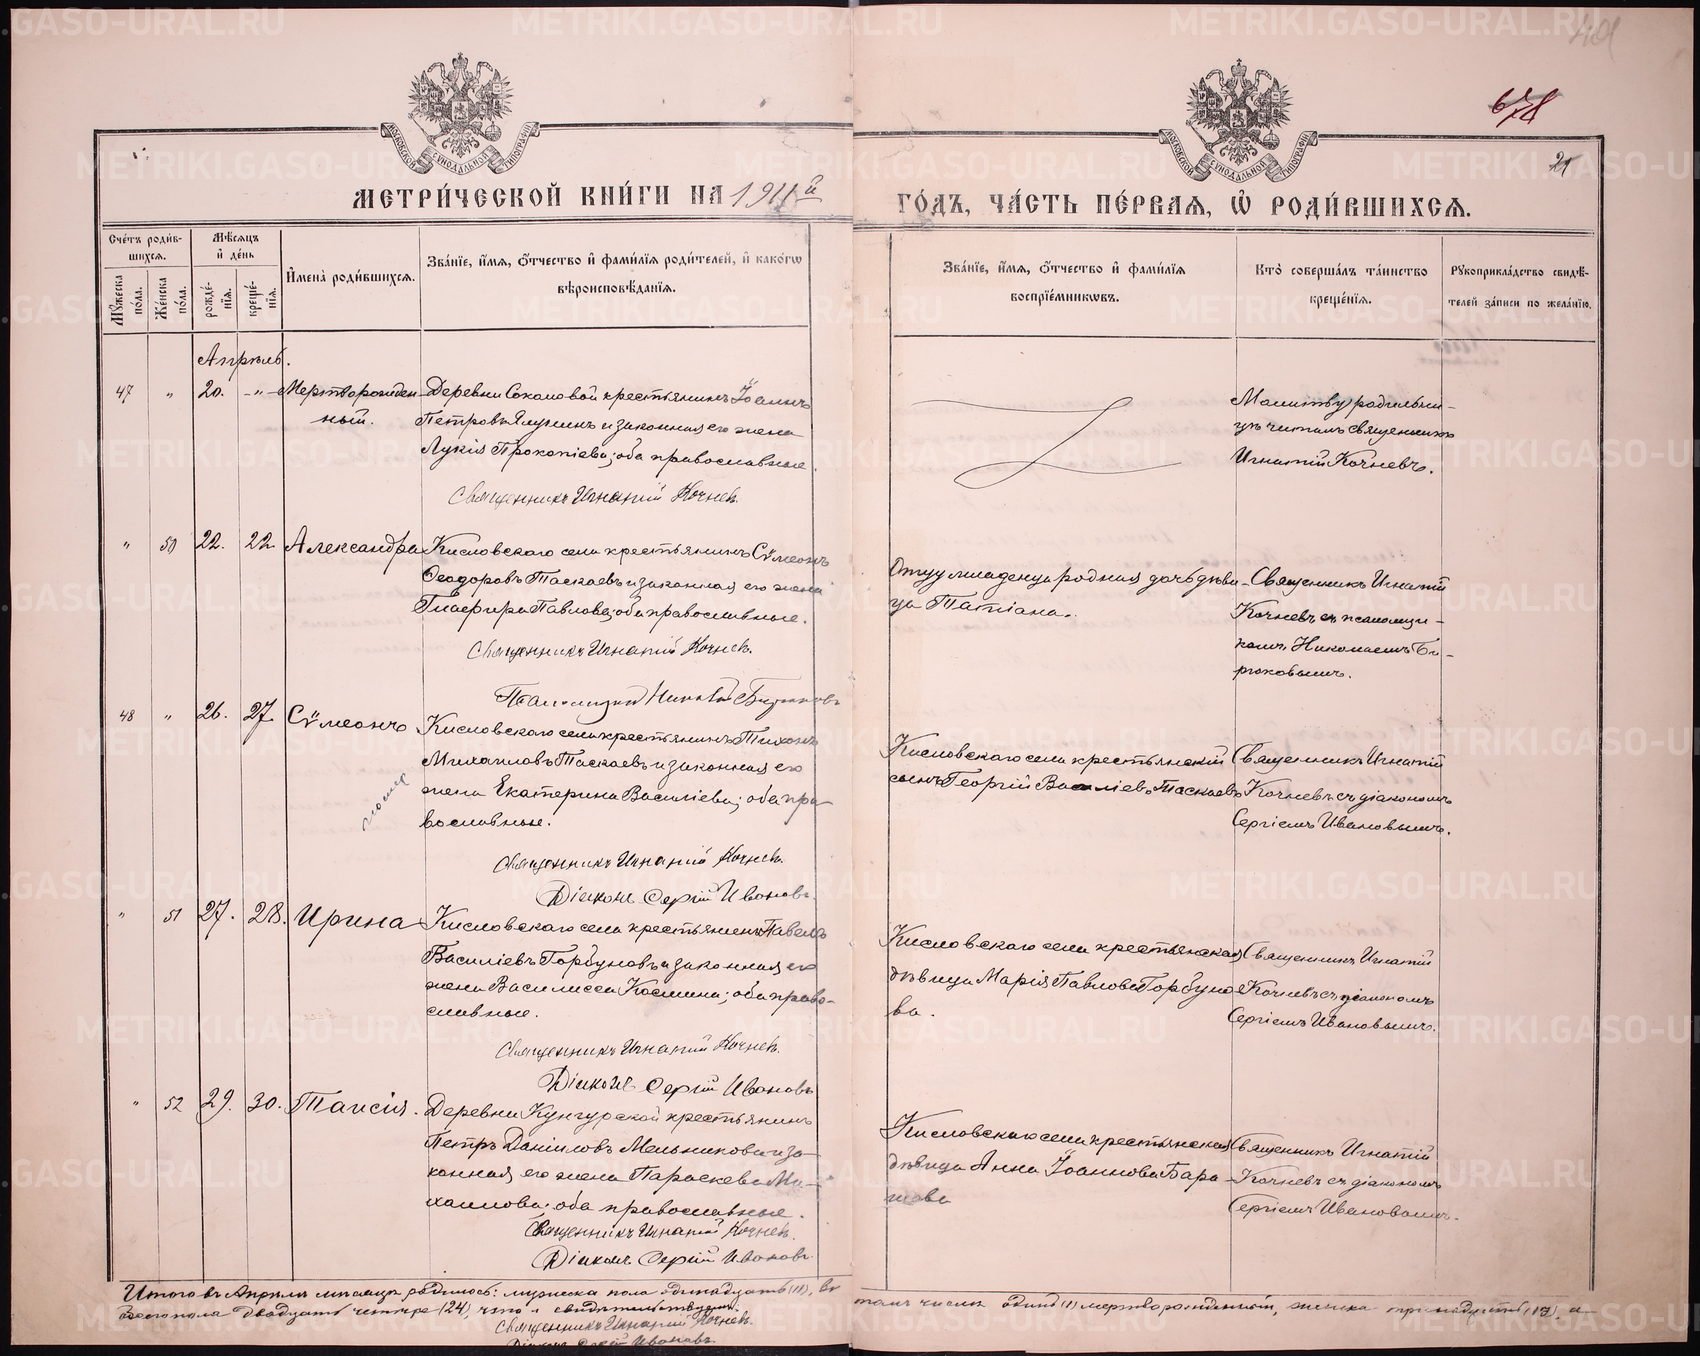 678
21
МЕТРИЧЕСКОЙ КНИГИ НА 1911й ГОДЪ, ЧАСТЬ ПЕРВАЯ, Ѡ РОДИВШИХСЯ.
МОСКОВСКОЙ СѴНОДАЛЬНОЙ ТИПОГРАФІИ
МОСКОВСКОЙ СѴНОДАЛЬНОЙ ТИПОГРАФІИ
Счетъ родив-
шихся.
Мужеска пола.
Женска пола.
Мѣсяцъ и день
рожде-
нія.
креще-
нія.
Имена родившихся.
Званіе, имя, отчество и фамилія родителей, и какогѡ
вѣроисповѣданія.
Званіе, имя, отчество и фамилія
воспріемникѡвъ.
Кто совершалъ таинство
крещенія.
Рукоприкладство свидѣ-
телей записи по желанію.
Апрѣль.
47 " 20. -"- Мертворожден-
ный.
Деревни Соколовой крестьянинъ Іоаннъ
Петровъ и законная его жена
Лукія Прокопіева; оба православные.
Священникъ Игнатій Кочнев.
Молитву родильни-
цѣ читалъ священникъ
Игнатій Кочневъ.
" 50 22. 22. Александра
Кисловскаго села крестьянинъ Сѵмеонъ
Ѳеодоровъ Таскаевъ и законная его жена
Глафира Павлова; оба православные.
Священникъ Игнатій Кочнев.
Псаломщик Николай Бирюковъ
Отцу младенца родная дочь дѣви-
ца Татіана.
Священникъ Игнатій
Кочневъ съ псаломщи-
комъ Николаемъ Би-
рюковымъ.
48 " 26. 27. Сѵмеонъ
Кисловскаго села крестьянинъ Тихонъ
Михаиловъ Таскаевъ и законная его
жена Екатерина Василіева; оба пра-
вославные.
Священникъ Игнатій Кочнев.
Діаконъ Сергій Ивановъ.
Кисловскаго села крестьянскій
сынъ Георгій Василіевъ Таскаевъ
Священникъ Игнатій
Кочневъ съ діакономъ
Сергіемъ Ивановымъ.
" 51 27. 28. Ирина
Кисловскаго села крестьянинъ Павелъ
Василіевъ Горбуновъ и законная его
жена Василисса Космина; оба право-
славные.
Священникъ Игнатій Кочнев.
Діаконъ Сергій Ивановъ
Кисловскаго села крестьянская
дѣвица Марія Павлова Горбуно-
ва.
Священникъ Игнатій
Кочневъ съ діакономъ
Сергіемъ Ивановымъ.
" 52 29. 30. Таисія.
Деревни Кунгурской крестьянинъ
Петръ Даніиловъ Мельниковъ и за-
конная его жена Параскева Ми-
хаилова; оба православные.
Священникъ Игнатій Кочнев.
Діаконъ Сергій Ивановъ
Кисловскаго села крестьянская
дѣвица Анна Іоаннова Бара-
Священникъ Игнатій
Кочневъ съ діакономъ
Сергіемъ Ивановымъ.
Итого въ Апрѣлѣ мѣсяцѣ родилось: мужеска пола одинадцать (11), въ томъ числѣ одинъ (1) мертворожденный, женска тринадцать (13), а
всего пола двадцать четыре (24), что и свидѣтельствуемъ.
Священникъ Игнатій Кочнев.
Діаконъ Сергій Ивановъ.
METRIKI.GASO-URAL.RU